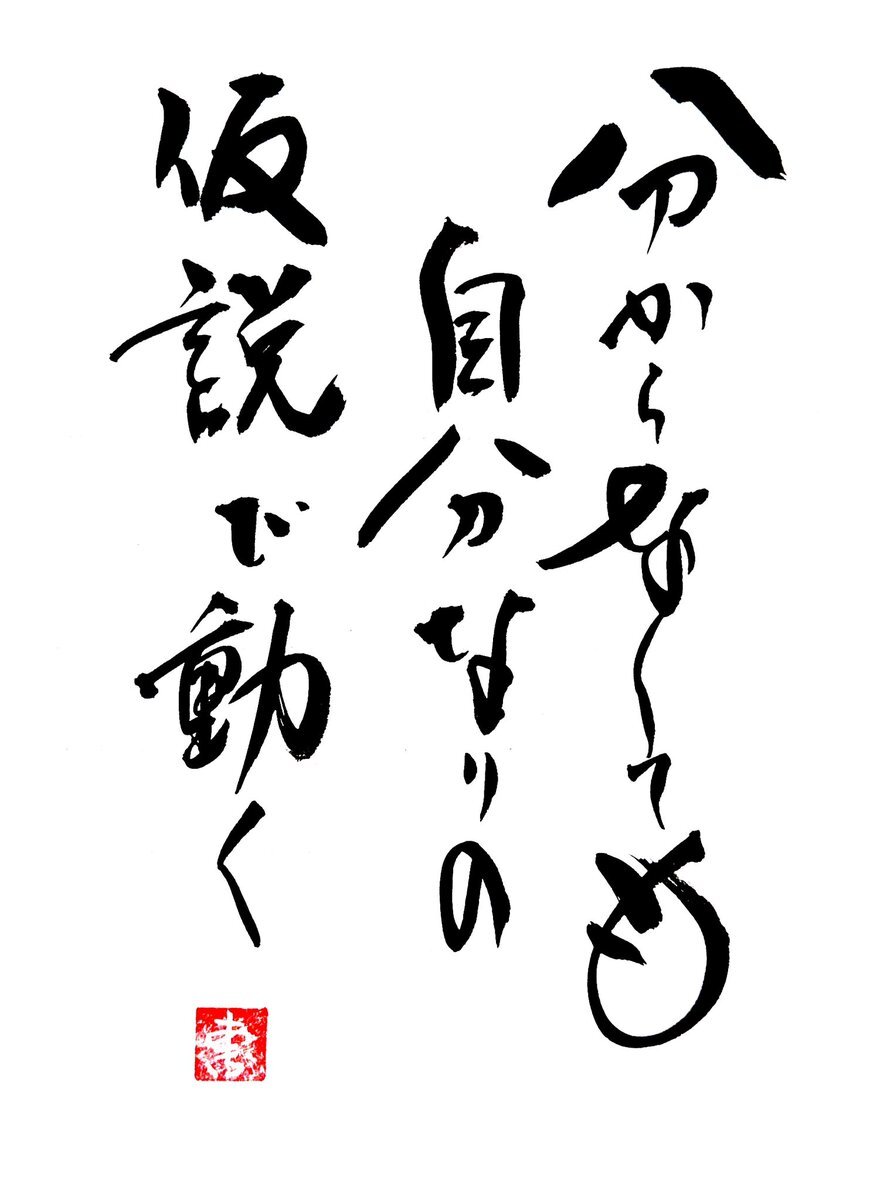 分からなくても
自分なりの
仮説で動く